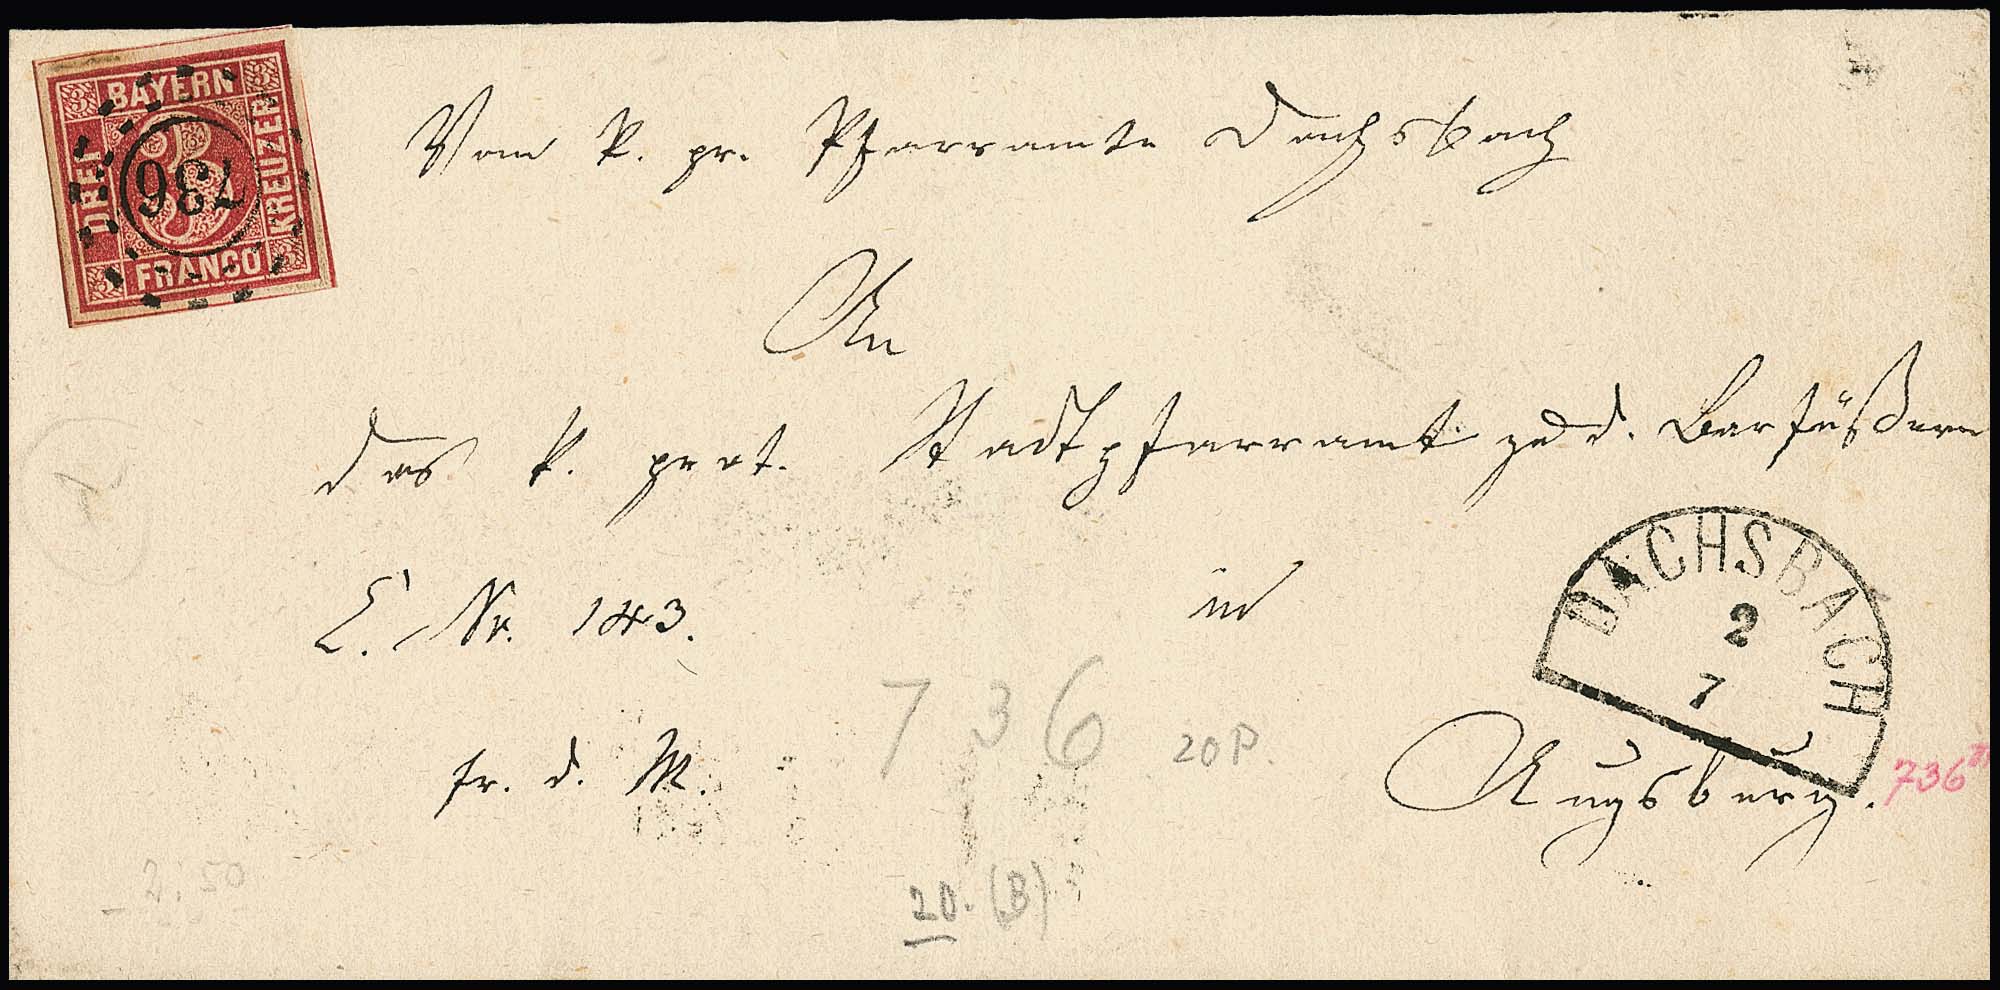 BAYERN
DREI
KREUZER
FRANCO
3 3 3 3
736
Vom k. pr. Pfarramte Dachsbach
An
das k. prot. Stadtpfarramt zu d. Barfüßern
E. Nr. 143.
in
DACHSBACH
2
7
fr. d. M.
Augsburg.
736
20 P.
736
20. (B)
2.50